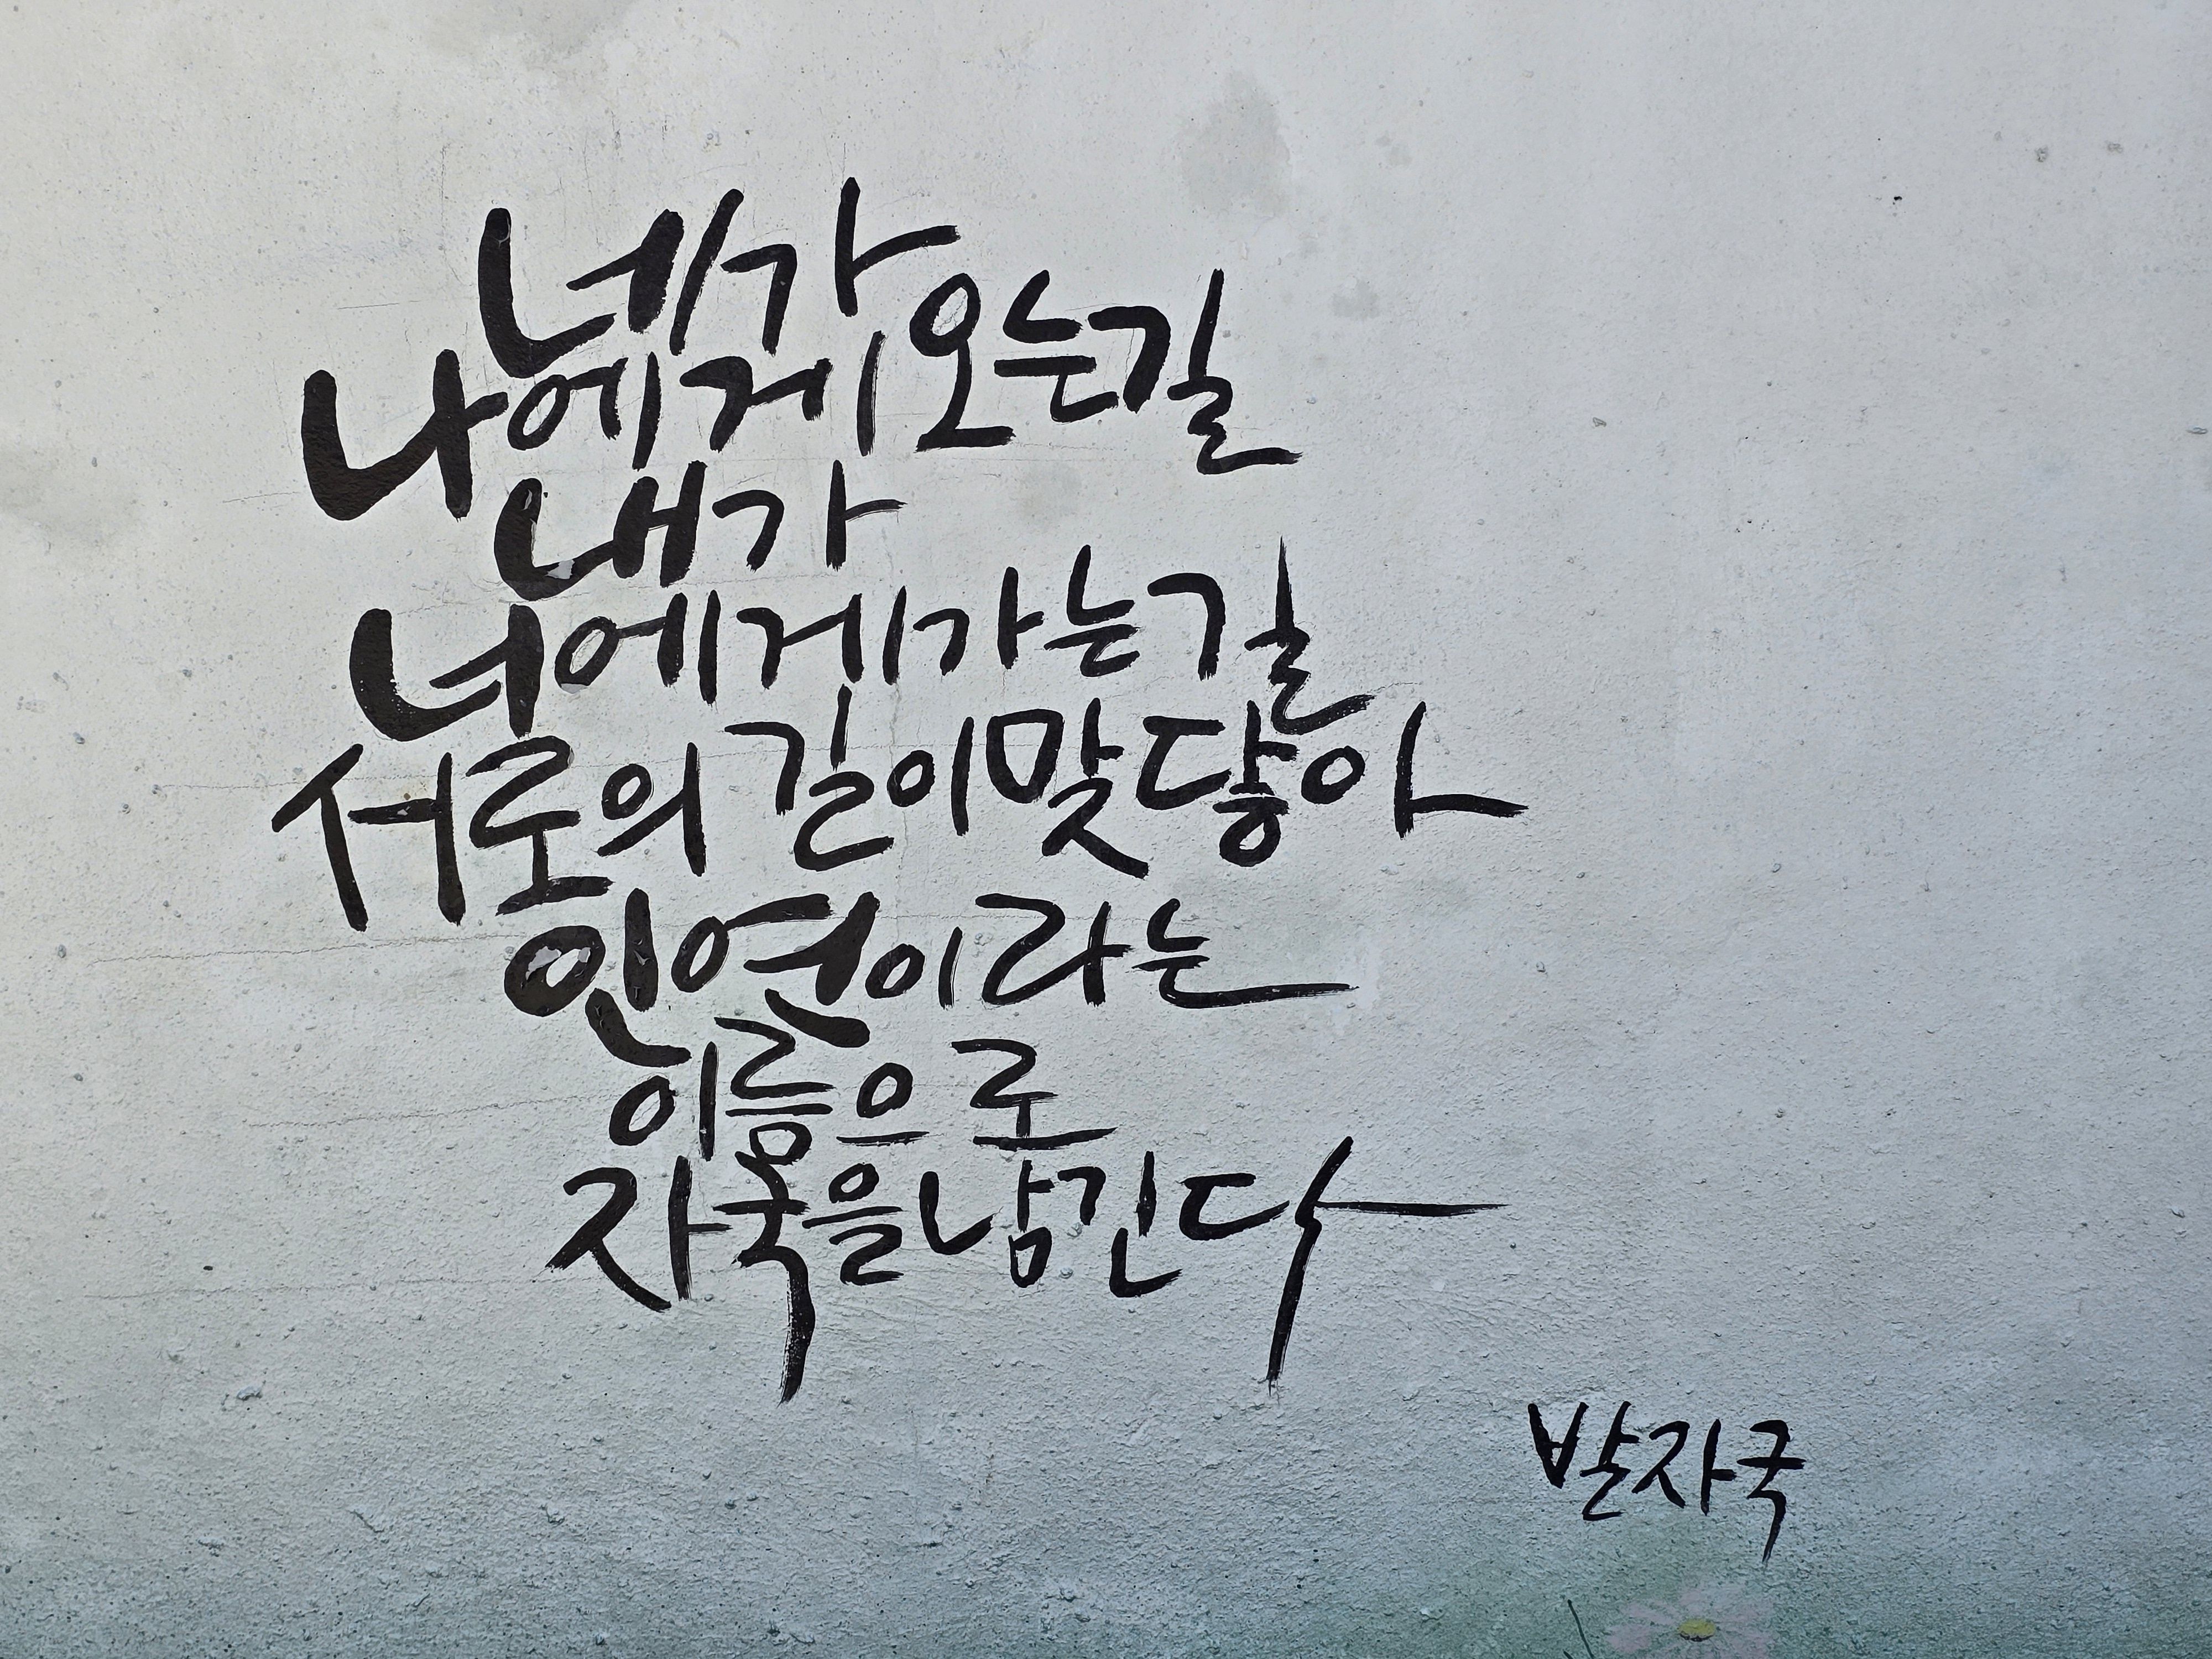 네가
나에게 오는 길
내가
너에게 가는 길
서로의 길이 맞닿아
인연이라는
이름으로
자국을 남긴다
발자국